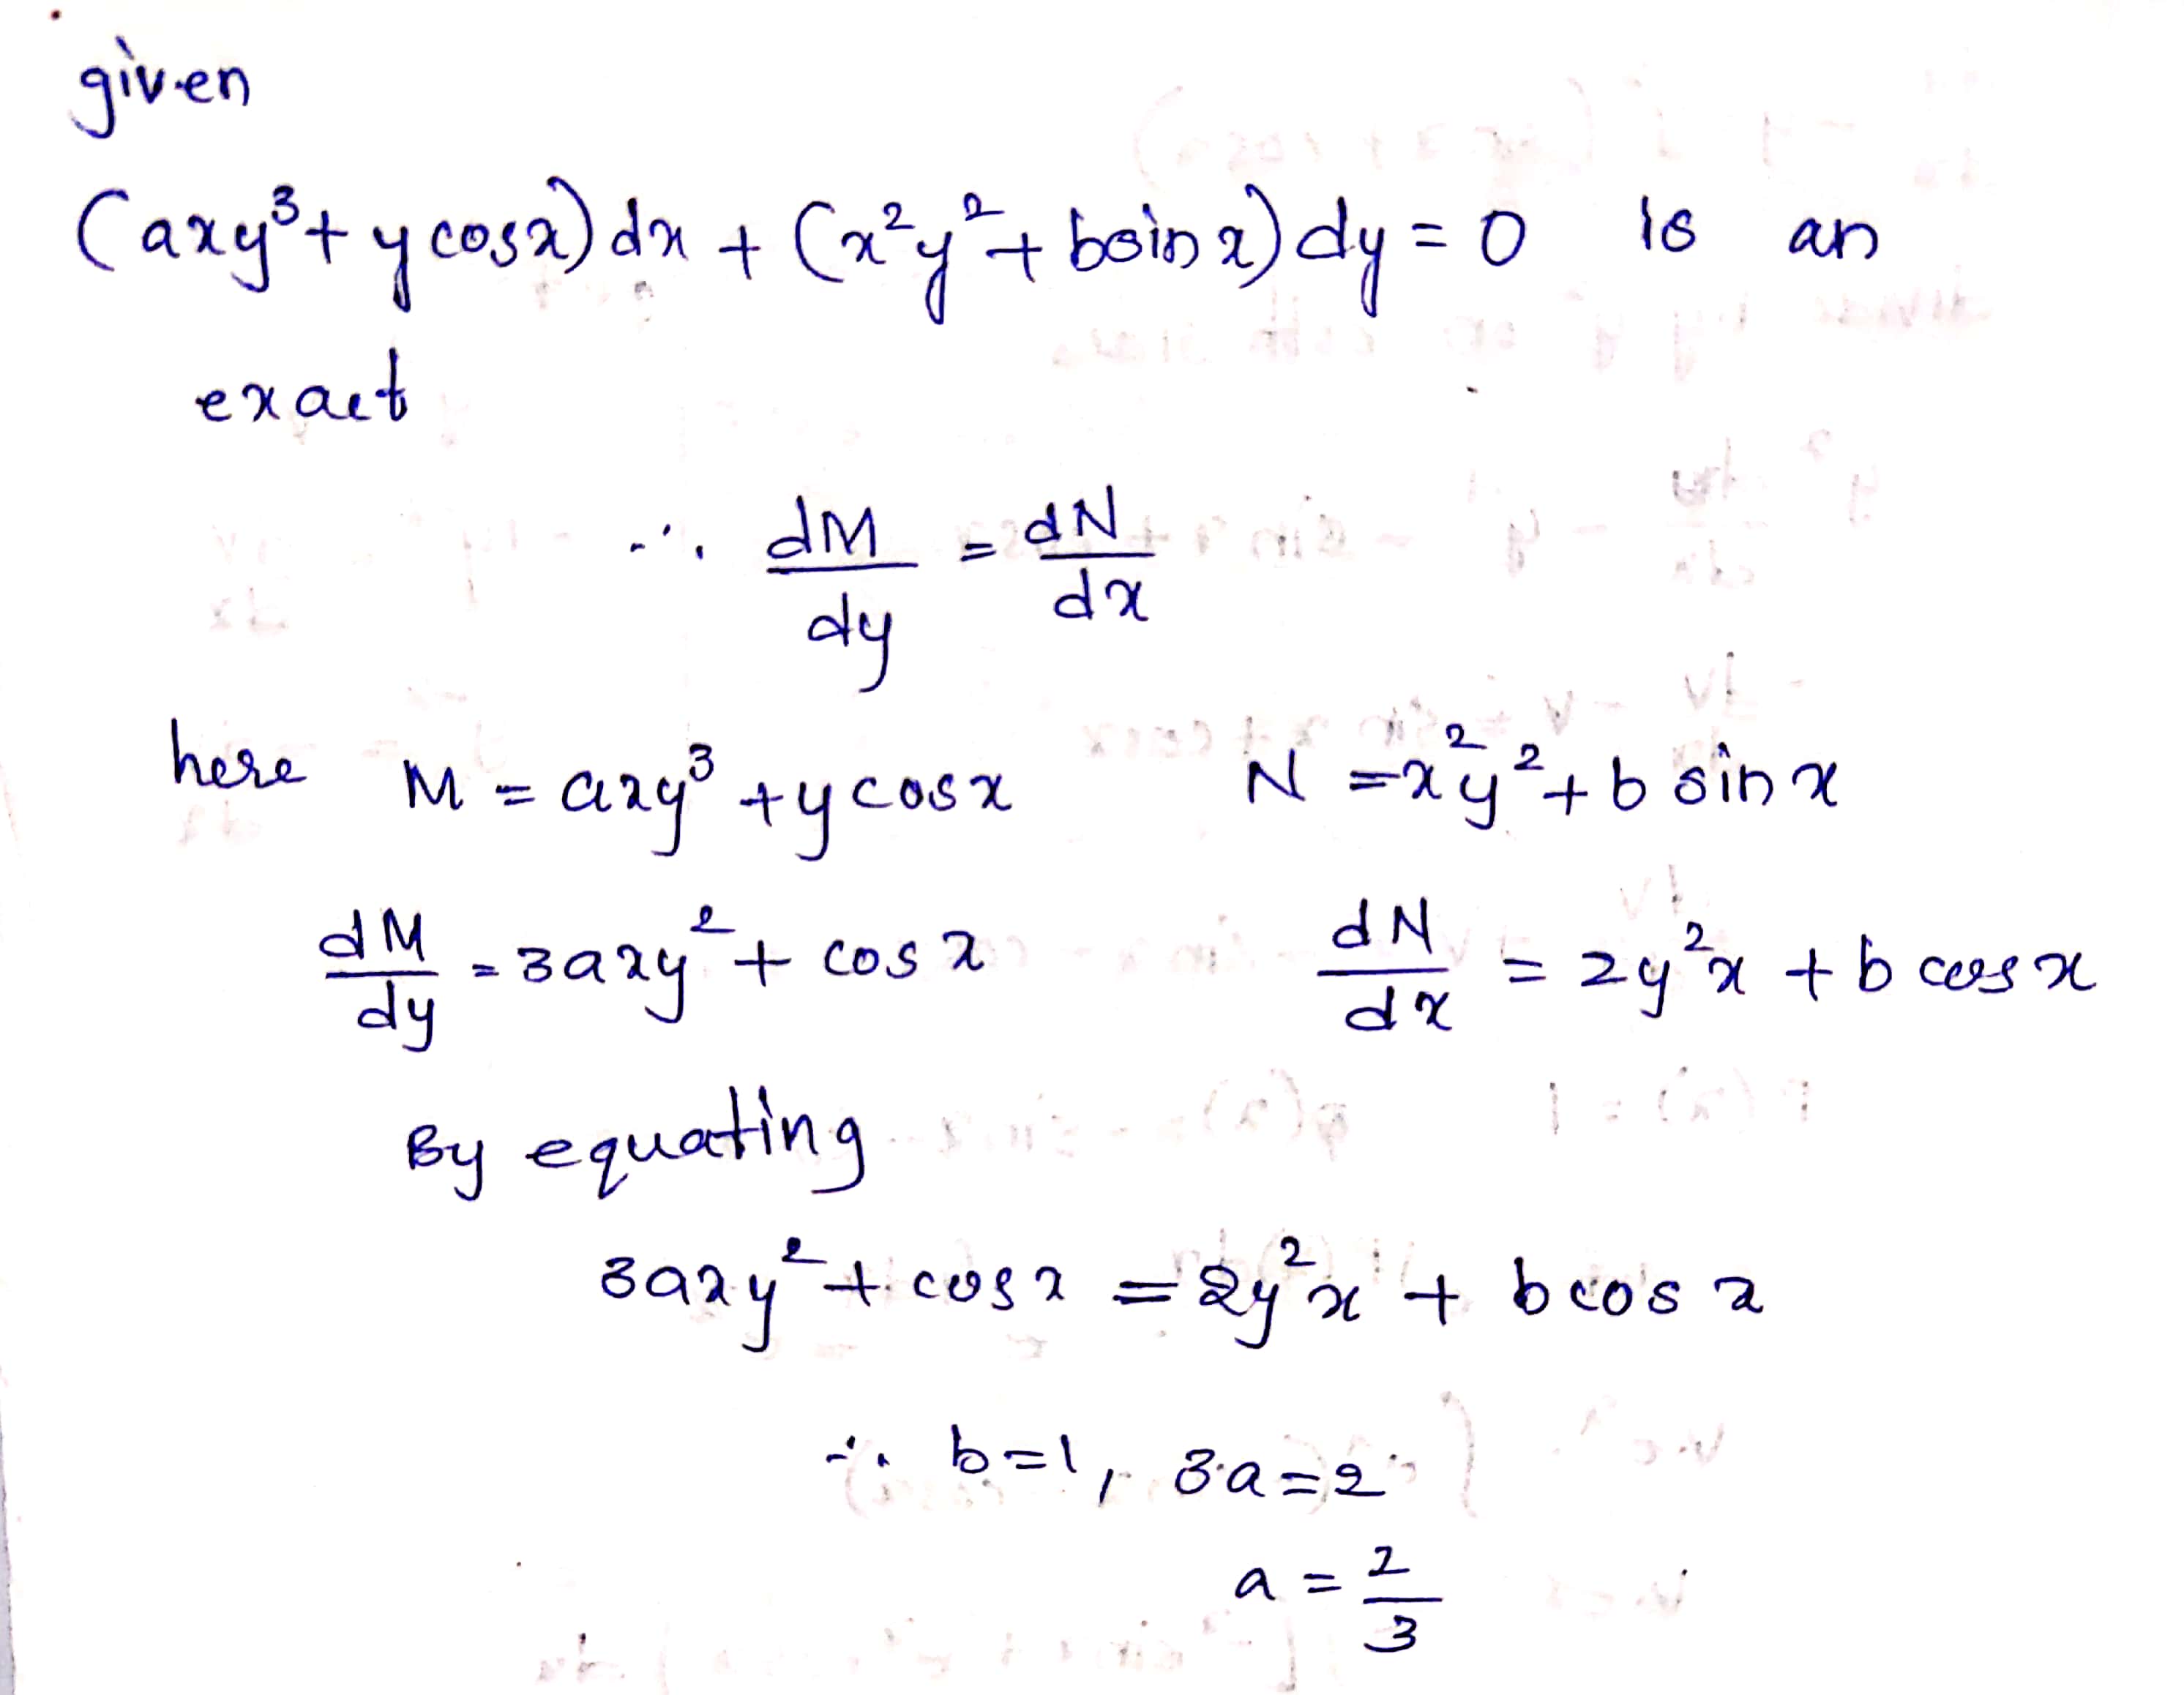 given
(axy³ + y cosx) dx + (x²y² + bsin x) dy = 0 is an
exact
∴ dM/dy = dN/dx
here M = axy³ + y cosx N = x²y² + b sin x
dM/dy = 3axy² + cos x dN/dx = 2y²x + b cos x
By equating
3axy² + cos x = 2y²x + b cos x
∴ b=1, 3a=2
a = 2/3